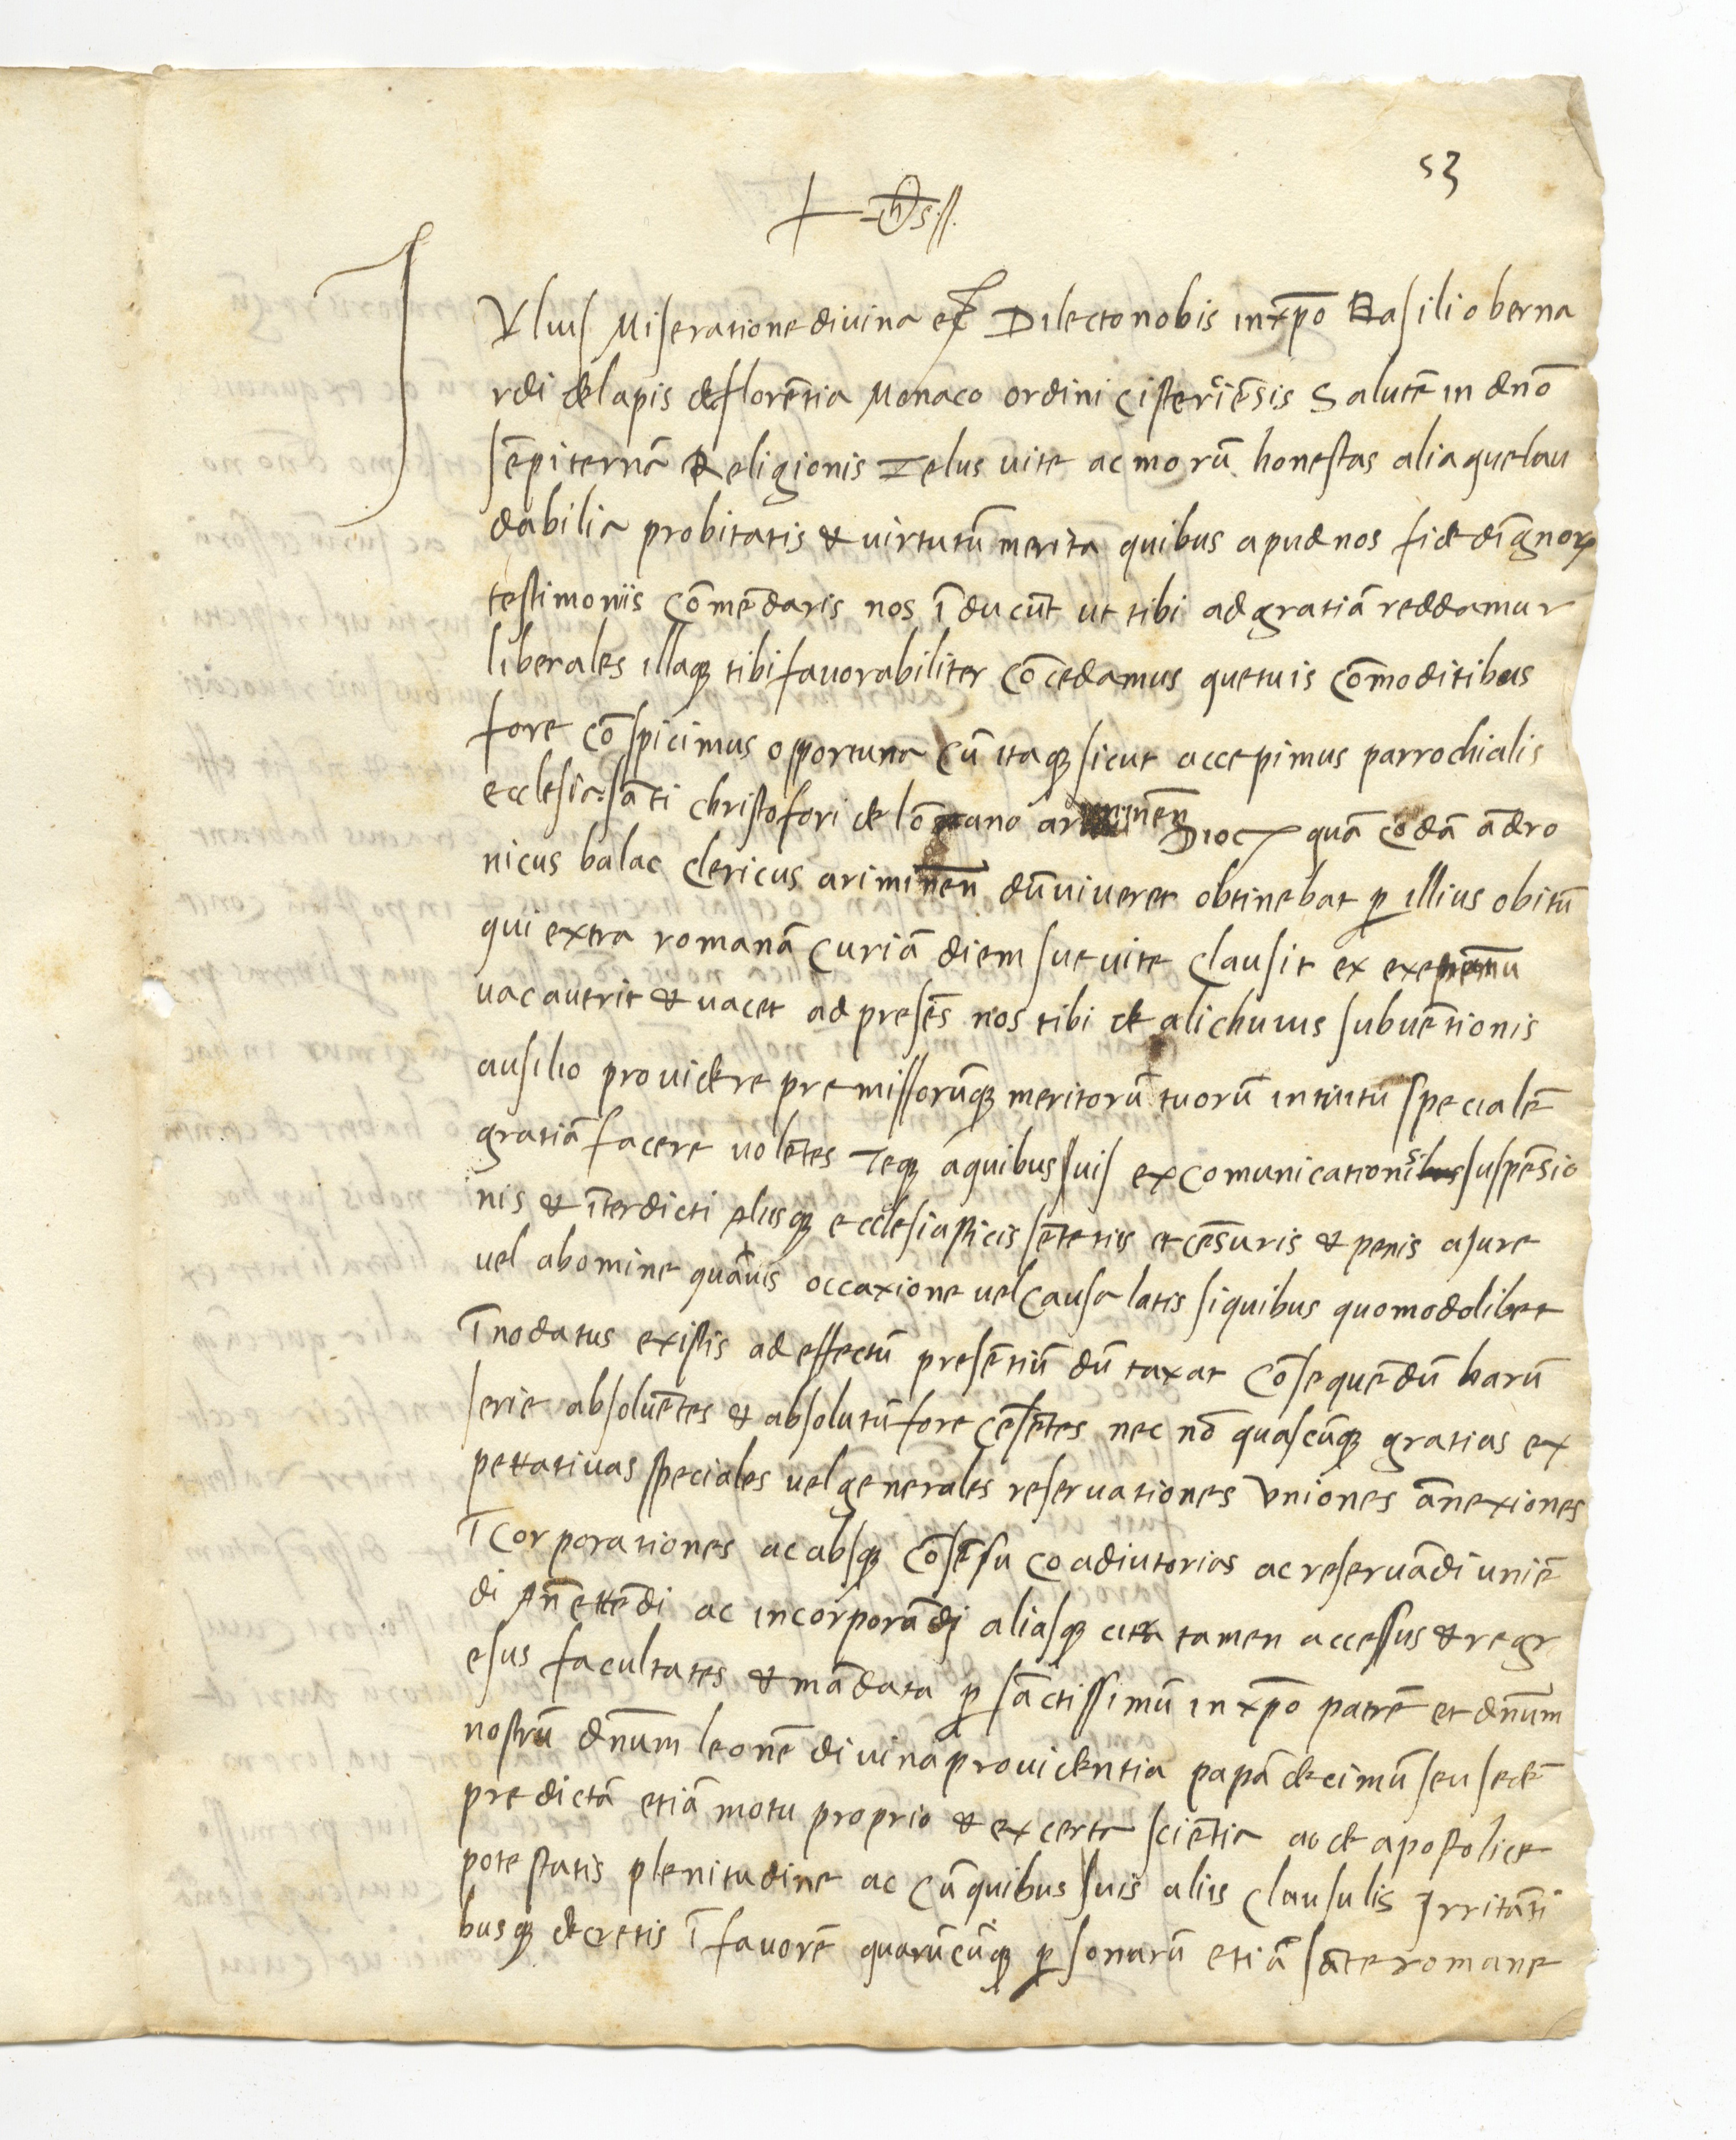 53
+ yhs //.
IVlius Miseratione divina etc Dilecto nobis in xp̄o Basilio berna
rdi de lapis de florētia Monaco ordini cisterciēsis Salutē in dn̄o
sēpiternā Religionis Zelus vite ac morū honestas aliaque lau
dabilia probitatis & virtutū merita quibus apud nos fide dīgnoꝝ
testimoniis cōmēdaris nos īducūt ut tibi ad gratiā reddamur
liberales illaqꝫ tibi favorabiliter cōcedamus que tuis cōmoditibus
fore cōspicimus opportuna Cū itaqꝫ sicut accepimus parrochialis
ecclesia sāti christofori de lōzano ariminēn Dioc quā codā ādro
nicus balac clericus ariminēn dū viveret obtinebat ꝑ illius obitū
qui extra romanā curiā diem sue vite clausit ex
vacaverit & vacet ad presēs nos tibi de alichuius subvētionis
ausilio providere premissorūqꝫ meritorū tuorū intuitu specialē
gratiā facere volētes Teqꝫ a quibusvis excomunicationis suspēsio
nis & īterdicti aliisqꝫ ecclesiasticis sētētiis et cēsuris & penis a iure
vel ab omine quavis occaxione vel causa latis si quibus quomodolibet
īnodatus existis ad effectū presētiū dū taxat cōsequēdū harū
serie absolvētes & absolutū fore cēsētes nec nō quascūqꝫ gratias ex
pettativas speciales vel generales reservationes Uniones ānexiones
īcorporationes ac absqꝫ cōsēsu coadiutorias ac reservādi uniē
di ānettēdi ac incorporādi aliasqꝫ citra tamen accessus & regr
esus facultates & mādata ꝑ sāctissimū in xp̄o patrē et dn̄um
nostrū dn̄um leonē divina providentia papā decimū seu sedē
predictā etiā motu proprio & ex certa sciētia ac de apostolice
potestatis plenitudine ac cū quibusvis aliis clausulis Irritāti
busqꝫ decretis ī favorē quarūcūqꝫ ꝑsonarū etiā sāte romane